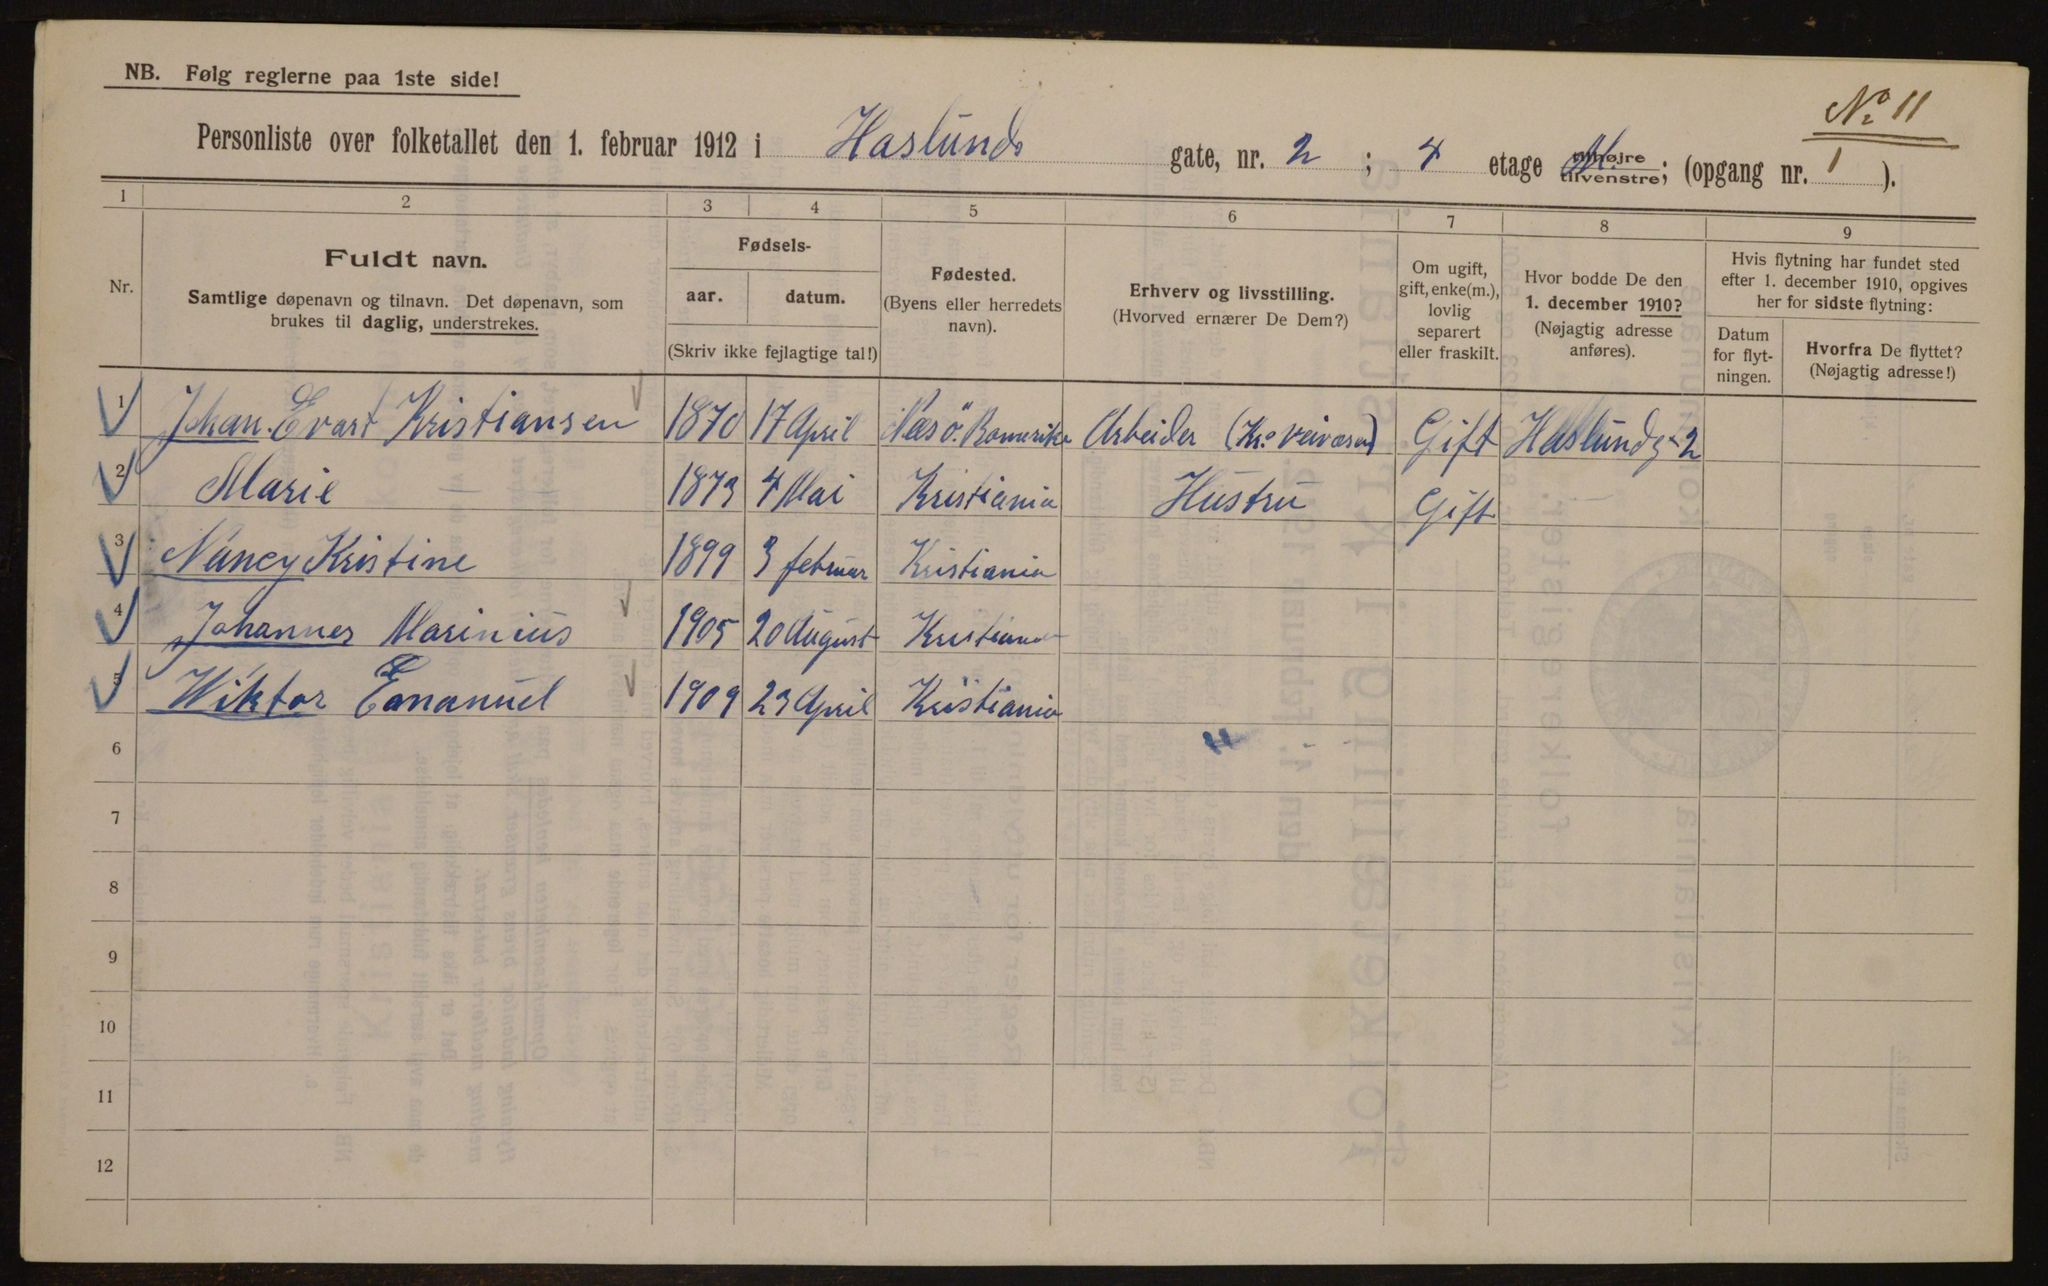 NB. Følg reglerne paa 1ste side!
No 11
Personliste over folketallet den 1. februar 1912 i Haslunds gate, nr. 2 ; 4 etage tilhøjre tilvenstre; M. (opgang nr. 1 ).
1 2 3 4 5 6 7 8 9
Nr.
Fuldt navn.
Samtlige døpenavn og tilnavn. Det døpenavn, som
brukes til daglig, understrekes.
Fødsels-
aar. datum.
(Skriv ikke fejlagtige tal!)
Fødested.
(Byens eller herredets
navn).
Erhverv og livsstilling.
(Hvorved ernærer De Dem?)
Om ugift,
gift, enke(m.),
lovlig
separert
eller fraskilt.
Hvor bodde De den
1. december 1910?
(Nøjagtig adresse
anføres).
Hvis flytning har fundet sted
efter 1. december 1910, opgives
her for sidste flytning:
Datum
for flyt-
ningen.
Hvorfra De flyttet?
(Nøjagtig adresse!)
1 Johan Evart Kristiansen 1870 17 April Næsö. Romerike Arbeider (Kr. veivæsen) Gift Haslundg 2
2 Marie 1873 4 Mai Kristiania Hustru Gift
3 Nancy Kristine 1899 3 februar Kristiania
4 Johannes Marinius 1905 20 August Kristiania
5 Wiktor Emanuel 1909 23 April Kristiania
6
7
8
9
10
11
12